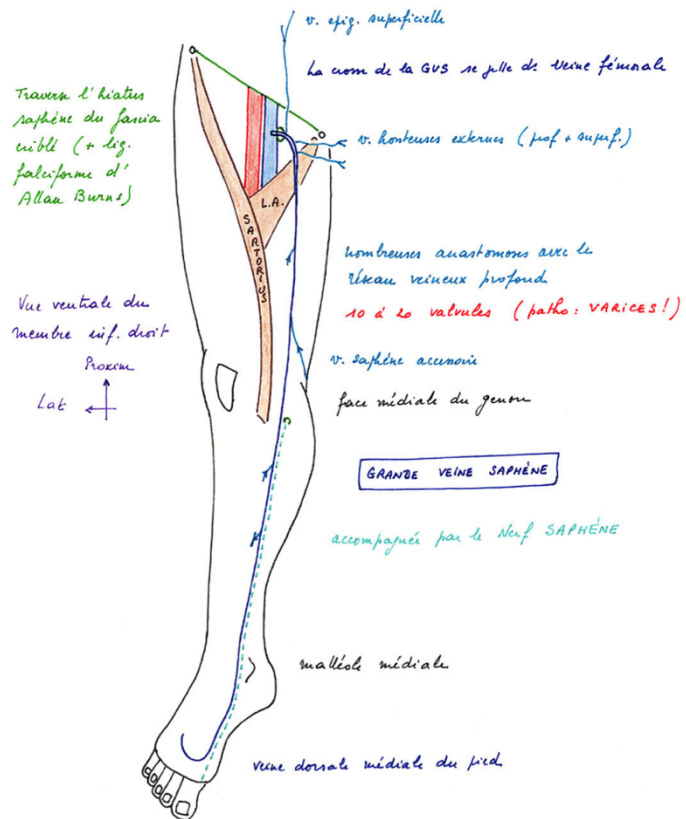 v. epig. superficielle
La crosse de la GVS se jette ds veine fémorale
Traverse l'hiatus
saphène du fascia
criblé (+ lig.
falciforme d'
Allan Burns)
v. honteuses externes (prof + superf.)
L.A.
SARTORIUS
nombreuses anastomoses avec le
réseau veineux profond
10 à 20 valvules (patho : VARICES !)
Vue ventrale du
membre inf. droit
Proxim
Lat
v. saphène accessoire
face médiale du genou
GRANDE VEINE SAPHÈNE
accompagnée par le Nerf SAPHÈNE
malléole médiale
veine dorsale médiale du pied